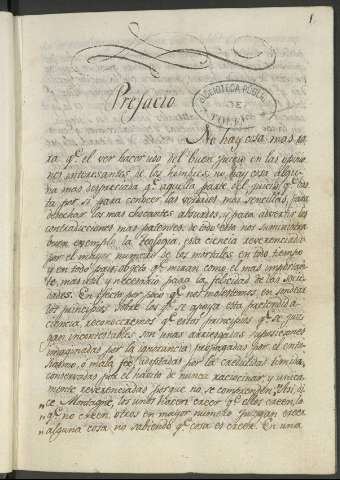 1
Prefacio.
BIBLIOTECA PUBLICA
DE
TOLEDO
No hay cosa mas ra
ra q.e el ver hacer uso del buen juicio en las opinio
nes interesantes a los hombres; no hay cosa algu
na mas despreciada q.e aquella parte del juicio q.e bas
ta por si para conocer las verdades mas sencillas, para
desechar los mas chocantes absurdos, y para abstenerse de
contradicciones mas patentes: de todo esto nos suministra
buen exemplo la teologia, esta ciencia reverenciada
por el mayor numero de los mortales en todo tiempo
y en todo pais, objeto q.e miran como el mas importan
te, mas util y necesario para la felicidad de las socie
dades. En efecto por poco q.e nos molestemos en sondear
los principios sobre los q.e se apoya esta pretendida
ciencia, reconoceremos q.e estos principios q.e se juz
gan incontestables son unas arriesgadas suposiciones
imaginadas por la ignorancia propagadas por el entu
siasmo, o mala fee, adoptadas por la credulidad timida,
conservadas por el habito de nunca raciocinar, y unica
mente reverenciadas porque no se comprenden. Unos, di
„ ce Montagne, los unos hacen creer q.e ellos creen lo
„ q.e no creen, otros en mayor numero juzgan creer
„ alguna cosa no sabiendo q.e cosa es creer. En una